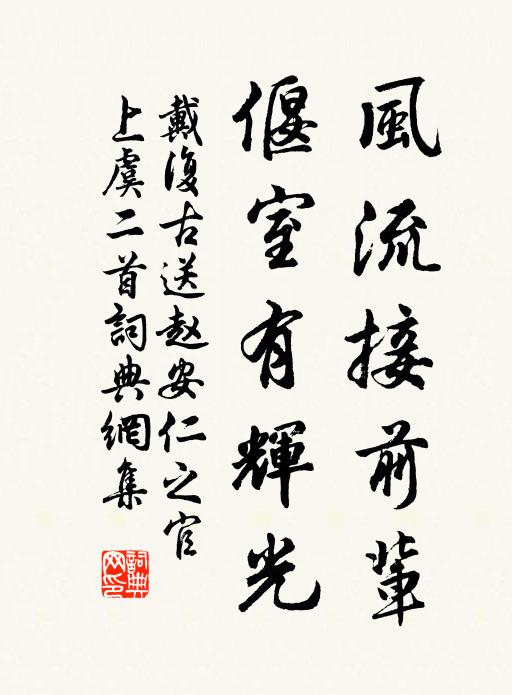 風流接前輩
偃室有輝光
戴復古送趙安仁之官
上虞二首詞典網集
詞典網印